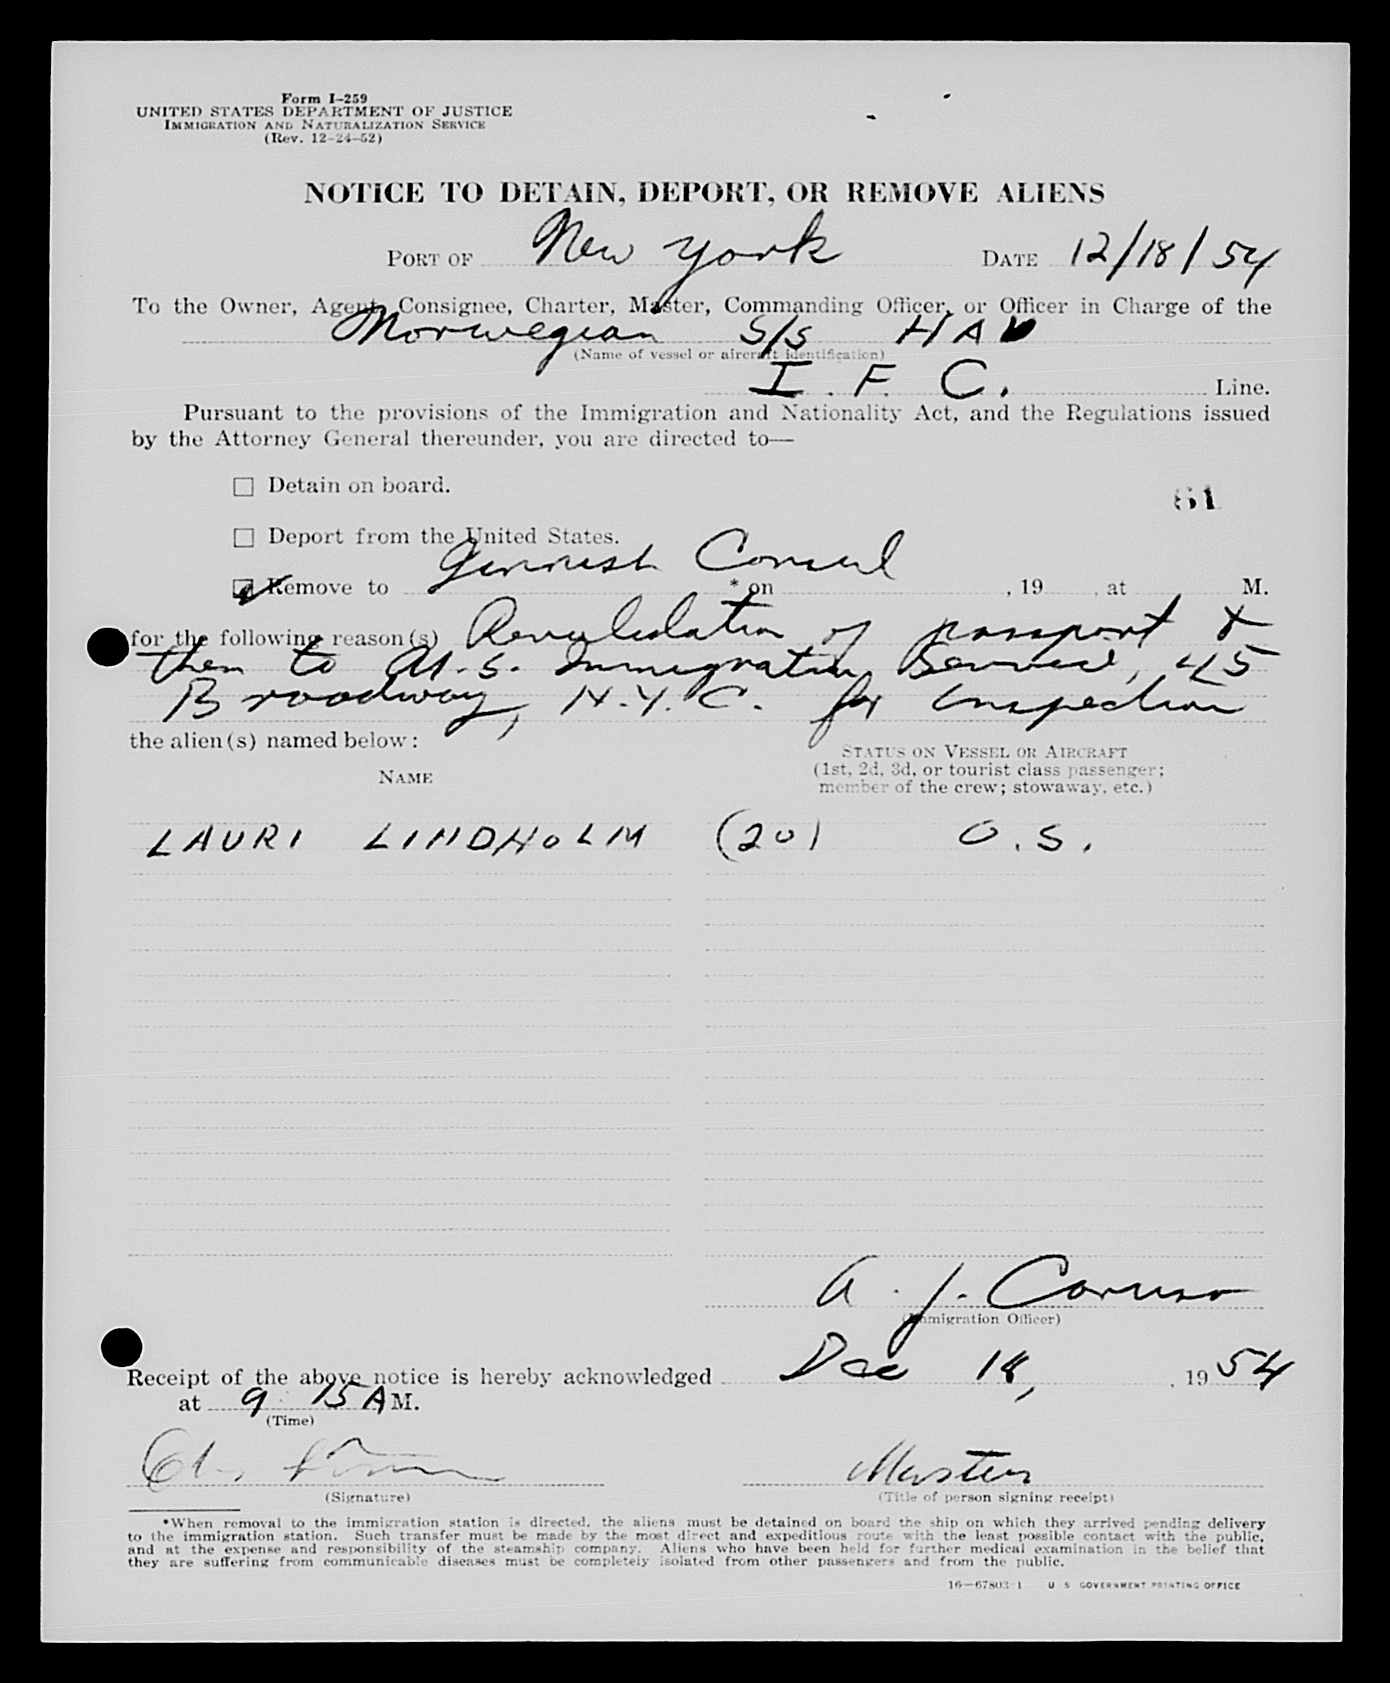 Form I-259
UNITED STATES DEPARTMENT OF JUSTICE
IMMIGRATION AND NATURALIZATION SERVICE
(Rev. 12-24-52)
NOTICE TO DETAIN, DEPORT, OR REMOVE ALIENS
PORT OF New York DATE 12/18/54
To the Owner, Agent, Consignee, Charter, Master, Commanding Officer, or Officer in Charge of the
Norwegian S/S HAV
(Name of vessel or aircraft identification)
I. F. C. Line.
Pursuant to the provisions of the Immigration and Nationality Act, and the Regulations issued
by the Attorney General thereunder, you are directed to—
☐ Detain on board.
61
☐ Deport from the United States.
☑ Remove to Finnish Consul * on , 19 , at M.
for the following reason(s) Revalidation of passport &
then to U.S. Immigration Service, 45
Broadway, N.Y.C. for inspection
the alien(s) named below:
STATUS ON VESSEL OR AIRCRAFT
(1st, 2d, 3d, or tourist class passenger;
member of the crew; stowaway, etc.)
NAME
LAURI LINDHOLM (20) O.S.
A. J. Caruso
(Immigration Officer)
Receipt of the above notice is hereby acknowledged Dec 18, , 1954
at 9:15 A M.
(Time)
Master
(Signature) (Title of person signing receipt)
*When removal to the immigration station is directed, the aliens must be detained on board the ship on which they arrived pending delivery
to the immigration station. Such transfer must be made by the most direct and expeditious route with the least possible contact with the public,
and at the expense and responsibility of the steamship company. Aliens who have been held for further medical examination in the belief that
they are suffering from communicable diseases must be completely isolated from other passengers and from the public.
16—67803-1 U S GOVERNMENT PRINTING OFFICE